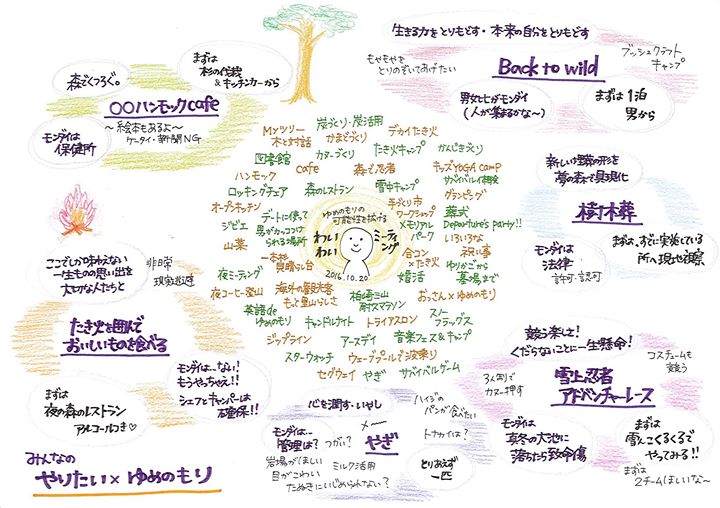 まずは
杉の伐採
&キッチンカーから
森でくつろぐ。
○○ハンモックcafe
〜絵本もあるよ〜
ケータイ・新聞NG
モンダイは
保健所
生きる力をとりもどす・本来の自分をとりもどす
もやもやを
とりのぞいてあげたい
Back to wild
ブッシュクラフト
キャンプ
男女比がモンダイ
(人が集まるかな〜)
まずは1泊
男から
新しい埋葬の形を
夢の森で具現化
樹木葬
モンダイは
法律
許可・認可
まずは、すでに実施している
所へ現地視察
Myツリー 炭づくり・炭活用
木と対話 かまどづくり デカイたき火
図書館 カヌーづくり たき火キャンプ かんじきづくり
ハンモック cafe 森で忍者 キッズYOGA camp
ロッキングチェア 森のレストラン 雪中キャンプ サバイバル相談
オープンキッチン グランピング
ジビエ デートに使って
男がカッコつけ
られる場所
山菜
ゆめのもりの
可能性を拡げる
わいわい ミーティング
2016.10.20
手づくり市
ワークショップ 葬式
メモリアル
パーク Departure's party!!
いろいろな
合コン
×たき火 祝い事
ゆりかごから
墓場まで
婚活
一本杉
見晴らし台
夜ミーティング
夜コーヒー登山 海外の観光客
もっと里山らしさ 柏崎三山
尉スマラソン おっさん×ゆめのもり
英語de
ゆめのもり キャンドルナイト トライアスロン スノー
フラッグス
ジップライン アースデイ 音楽フェス&キャンプ
スターウォッチ ウェーブプールで波乗り
セグウェイ やぎ サバイバルゲーム
ここでしか味わえない
一生ものの思い出を
大切な人たちと
非日常
現実逃避
たき火を囲んで
おいしいものを食べる
モンダイは…ない!
もうやっちゃえ!!
シェフとキャンパーは
確保!!
まずは
夜の森のレストラン
アルコールつき♡
心を潤す・いやし
ハイジの
パンが食べたい
メ〜
やぎ
トナカイは?
モンダイは…
管理は? つがい?
岩場がほしい ミルク活用
目がこわい
たぬきにいじめられない?
とりあえず
一匹
競う楽しさ!
くだらないことに一生懸命!
コスチュームも
競う
雪上忍者
アドベンチャーレース
3人乗りで
カヌー押す
モンダイは
真冬の大池に
落ちたら致命傷
まずは
雪んこくるくるで
やってみる!!
まずは
2チームほしいな〜
みんなの
やりたい×ゆめのもり